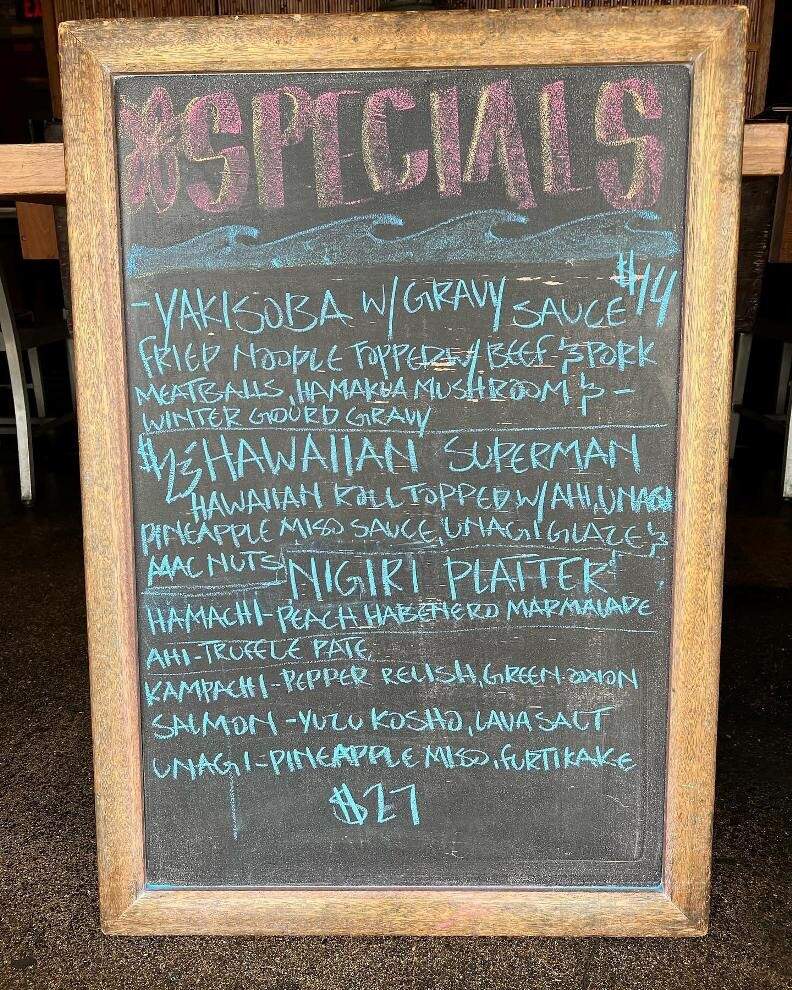 SPECIALS
- YAKISOBA W/ GRAVY SAUCE $14
FRIED NOODLE TOPPED W/ BEEF & PORK
MEATBALLS, HAMAKUA MUSHROOM & -
WINTER GOURD GRAVY
$23 HAWAIIAN SUPERMAN
HAWAIIAN ROLL TOPPED W/ AHI, UNAGI
PINEAPPLE MISO SAUCE, UNAGI GLAZE &
MAC NUTS NIGIRI PLATTER
HAMACHI - PEACH HABENERO MARMALADE
AHI - TRUFFLE PATE
KAMPACHI - PEPPER RELISH, GREEN ONION
SALMON - YUZU KOSHO, LAVA SALT
UNAGI - PINEAPPLE MISO, FURTIKAKE
$27